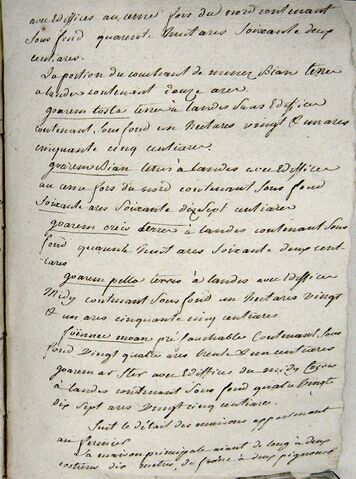 avec Edifices au cerné fors du nord contenant
Sous fond quarente huit ares Soixante deux
centiares.
La portion du couchant de menez Bian terre
a landes contenant douze ares
goarem tosta terre à landes Sans Edifice
contenant Sous fond un hectares vingt & un ares
cinquante cinq centiares.
goarem Bian terre à landes avec Edifices
au cerne fors du nord contenant Sous fond
Soixante ares Soixante dix Sept centiares
goarem creis terre à landes contenant Sous
fond quarente huit ares Soixante deux cent
iares
goarem pella terres à landes avec Edifices
Midy contenant Sous fond un hectares vingt
& un ares cinquante cinq centiares
foënnec moan pré fauchables Contenant Sous
fond Vingt quatre ares trente & un centiares
goarem ar Ster avec Edifices du midy terre
à landes contenant Sous fond quatre Vingts
dix Sept ares Vingt cinq centiares.
Suit le détail des maisons appartenant
au fermier
La maison principale aiant de long à deux
costieres dix metres, de franc à deux pignons